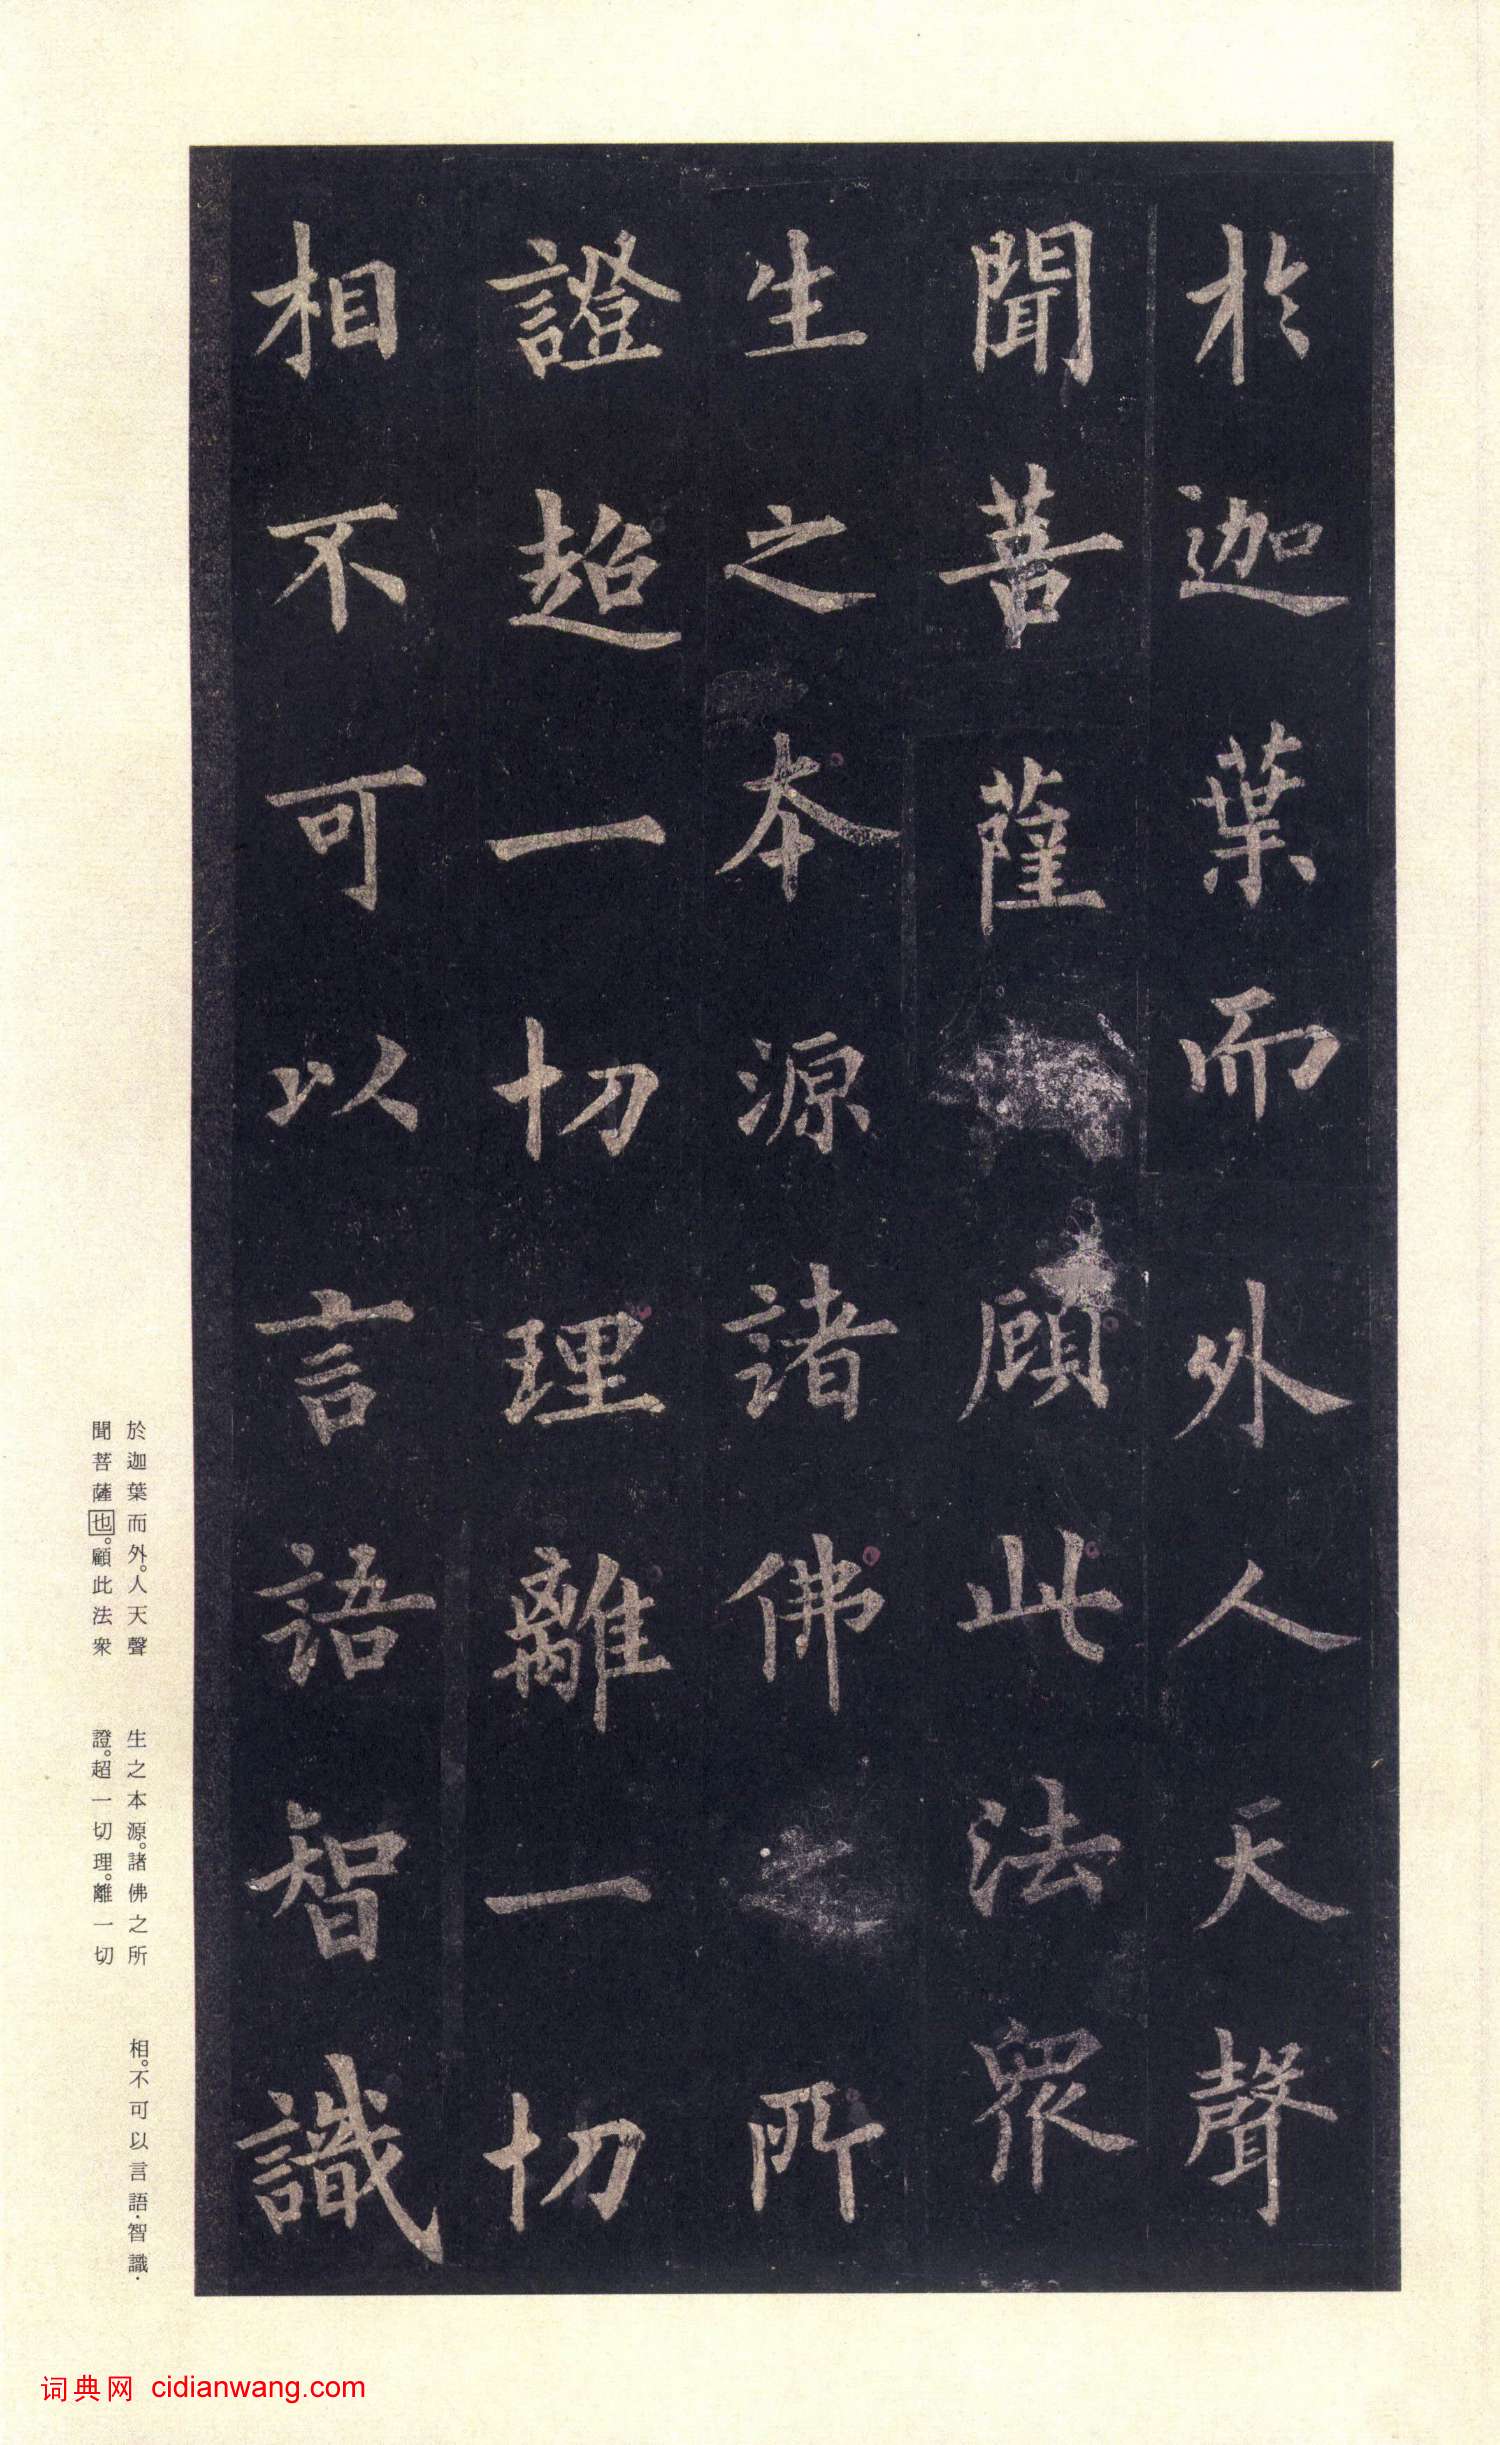 於迦葉而外人天聲
聞菩薩顧此法眾
生之本源諸佛之所
證超一切理離一切
相不可以言語智識
於迦葉而外。人天聲
聞菩薩也。顧此法衆
生之本源。諸佛之所
證。超一切理。離一切
相。不可以言語·智識·
词典网 cidianwang.com